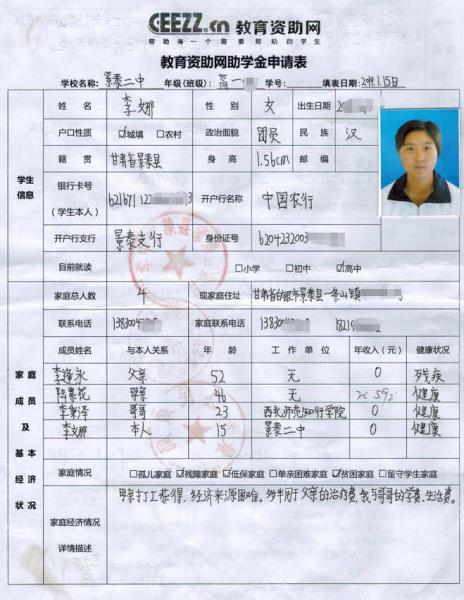 CEEZZ.cn 教育资助网
帮助每一个需要帮助的学生
教育资助网助学金申请表
学校名称: 景泰二中 年级(班级): 高一 学号: 填表日期:
姓名 李 娜 性别 女 出生日期
户口性质 ☑城填 □农村 政治面貌 团员 民族 汉
籍贯 甘肃省景泰县 身高 1.56cm 邮编
学生信息
银行卡号(学生本人) 开户行名称 中国农行
开户行支行 景泰支行 身份证号 6204232003
目前就读 □小学 □初中 ☑高中
家庭总人数 4 现家庭住址 甘肃省白银市景泰县一条山镇
联系电话 1383004 家庭联系电话 1383004 18219
家庭成员及基本经济状况
成员姓名 与本人关系 年龄 工作单位 年收入(元) 健康状况
父亲 52 无 0 残疾
母亲 46 无 健康
哥哥 23 西北师范知行学院 0 健康
李 娜 本人 15 景泰二中 0 健康
家庭情况 □孤儿家庭 ☑残障家庭 ☑低保家庭 □单亲困难家庭 ☑贫困家庭 □留守学生家庭
家庭经济情况详情描述
母亲打工 获得, 经济来源困难。 多半用于父亲的治疗费, 我与哥哥的学费、生活费。